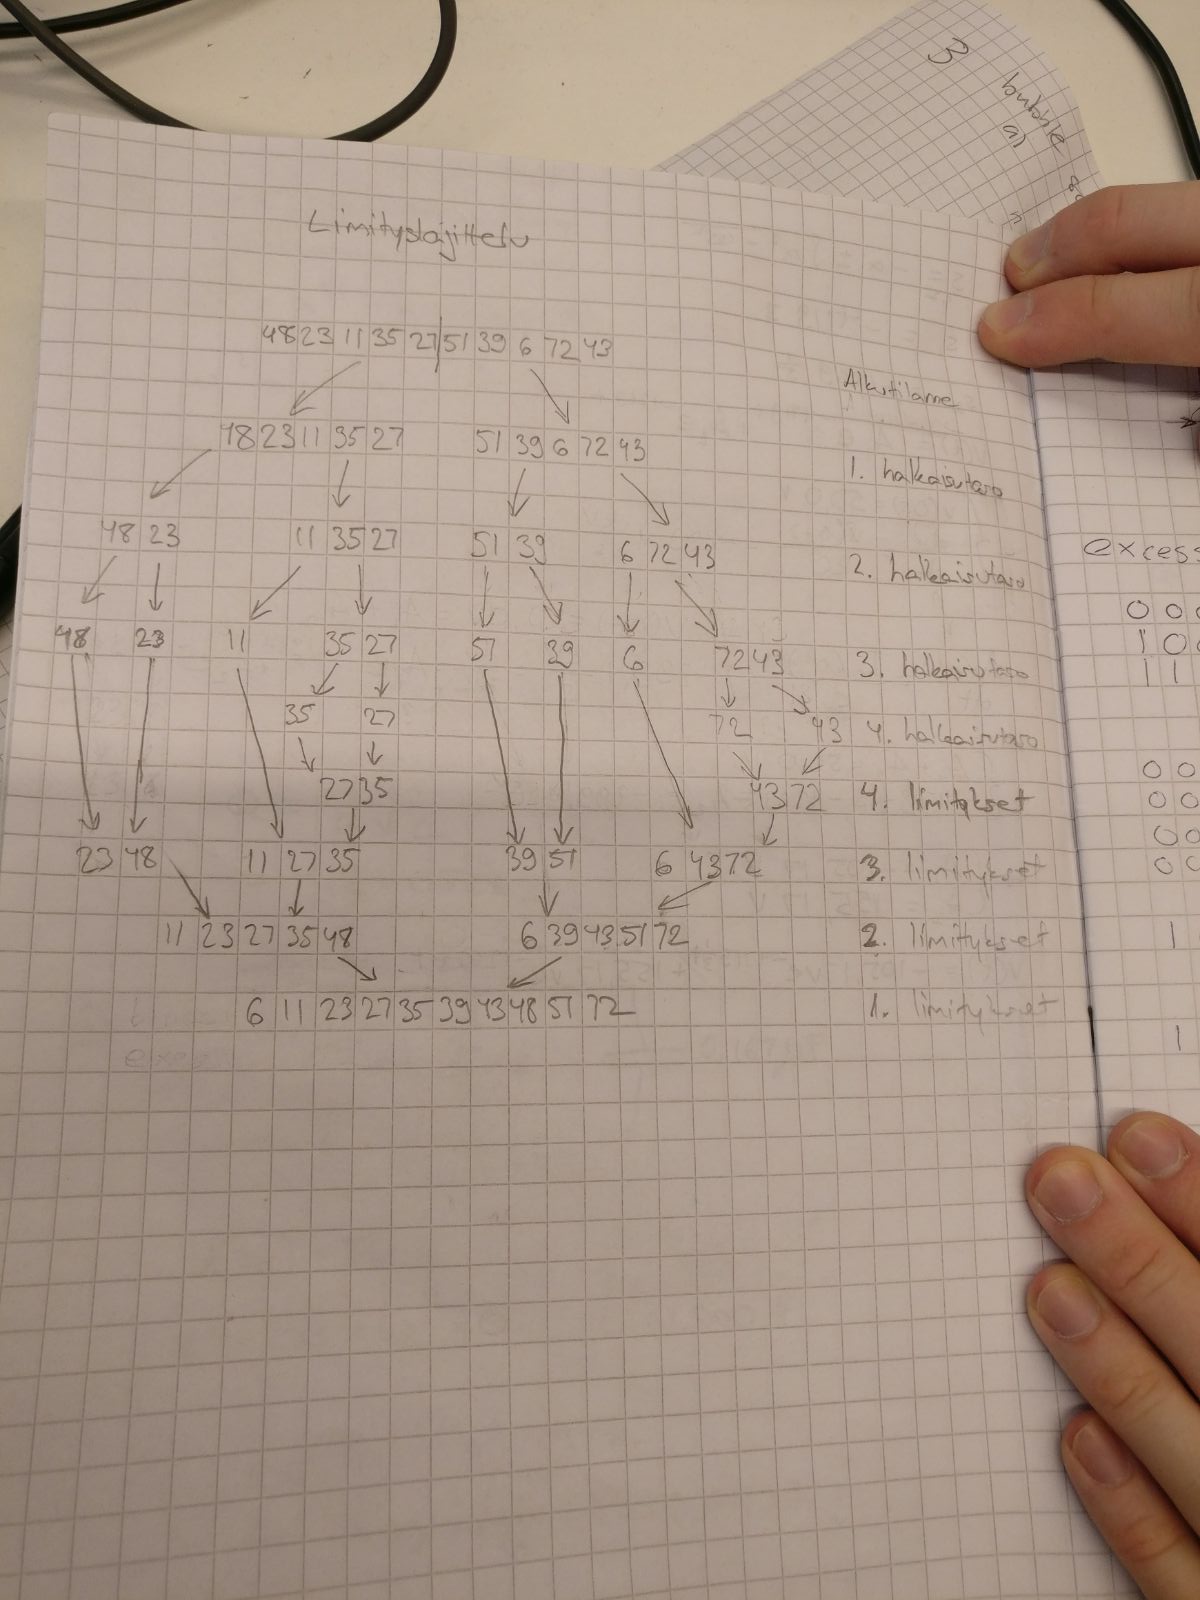 3
bubble
a)
Limityslajittelu
48 23 11 35 27 51 39 6 72 43
Alkutilanne
48 23 11 35 27 51 39 6 72 43
1. halkaisutaso
48 23 11 35 27 51 39 6 72 43
2. halkaisutaso
48 23 11 35 27 51 39 6 72 43
3. halkaisutaso
35 27 72 43 4. halkaisutaso
27 35 43 72 4. limitykset
23 48 11 27 35 39 51 6 43 72 3. limitykset
11 23 27 35 48 6 39 43 51 72 2. limitykset
6 11 23 27 35 39 43 48 51 72 1. limitykset
excess
0 0 0
1 0 0
1 1
0 0
0 0
0 0
0 0
1
1